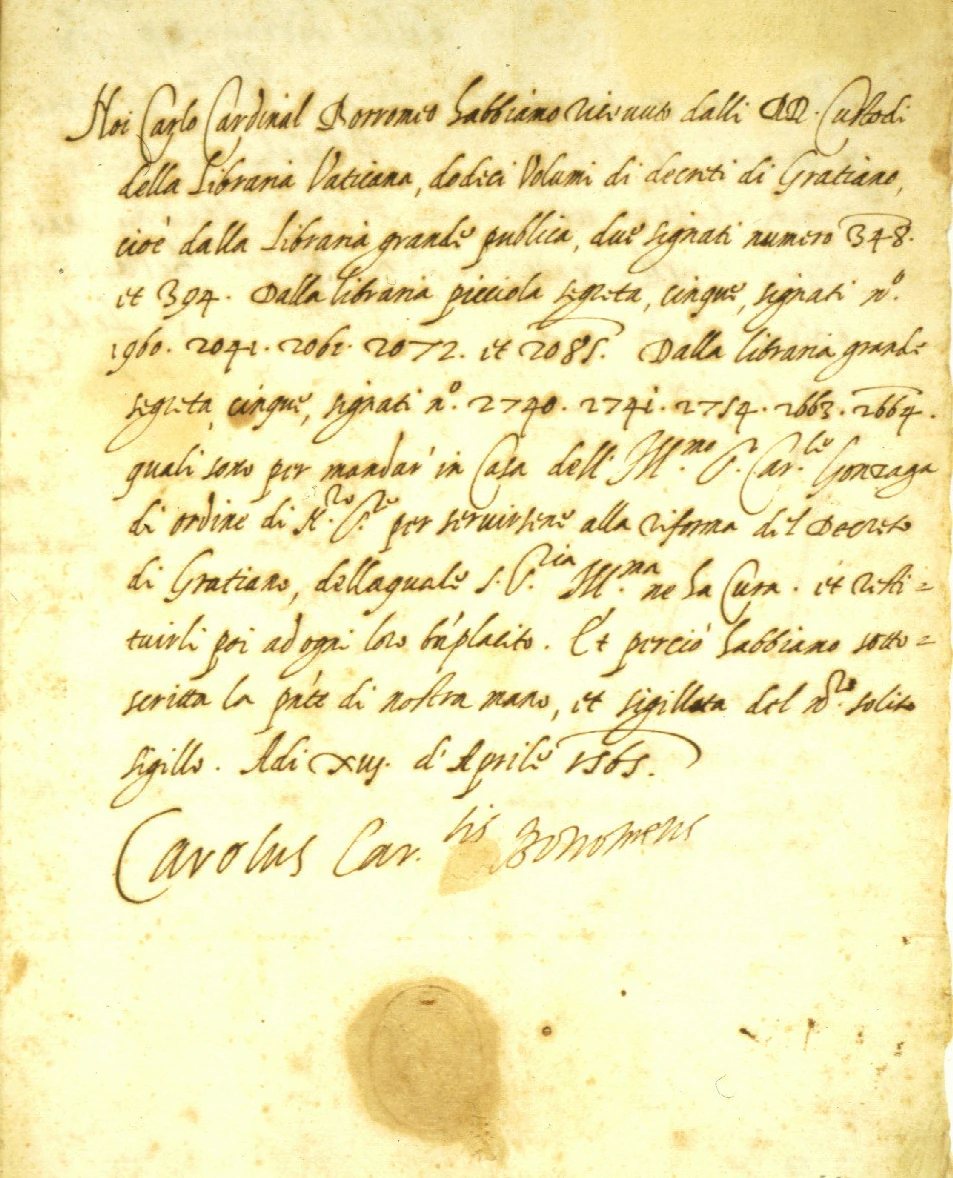 Noi Carlo Cardinal Borromeo habbiamo ricevuto dalli DD. Custodi
della Libraria Vaticana, dodeci Volumi di decreti di Gratiano,
cioè dalla Libraria grande publica, due signati numero 348.
et 394. Dalla libraria picciola segreta, cinque, signati n.º
1960. 2041. 2061. 2072. et 2085. Dalla libraria grande
segreta, cinque, signati n.º 2740. 2741. 2754. 2663. 2664.
quali sono per mandar' in Casa dell' Ill.mo S.r Car.le Gonzaga
di ordine di N.ro S.re per servirsene alla riforma del Decreto
di Gratiano, dellaquale S. S.ria Ill.ma ne ha Cura. et resti=
tuirli poi ad ogni loro bñplacito. Et perciò habbiamo sotto=
scritta la pñte di nostra mano, et sigillata del n.ro solito
sigillo. Adi xvij. d' Aprile 1565.
Carolus Car.lis Borromeus